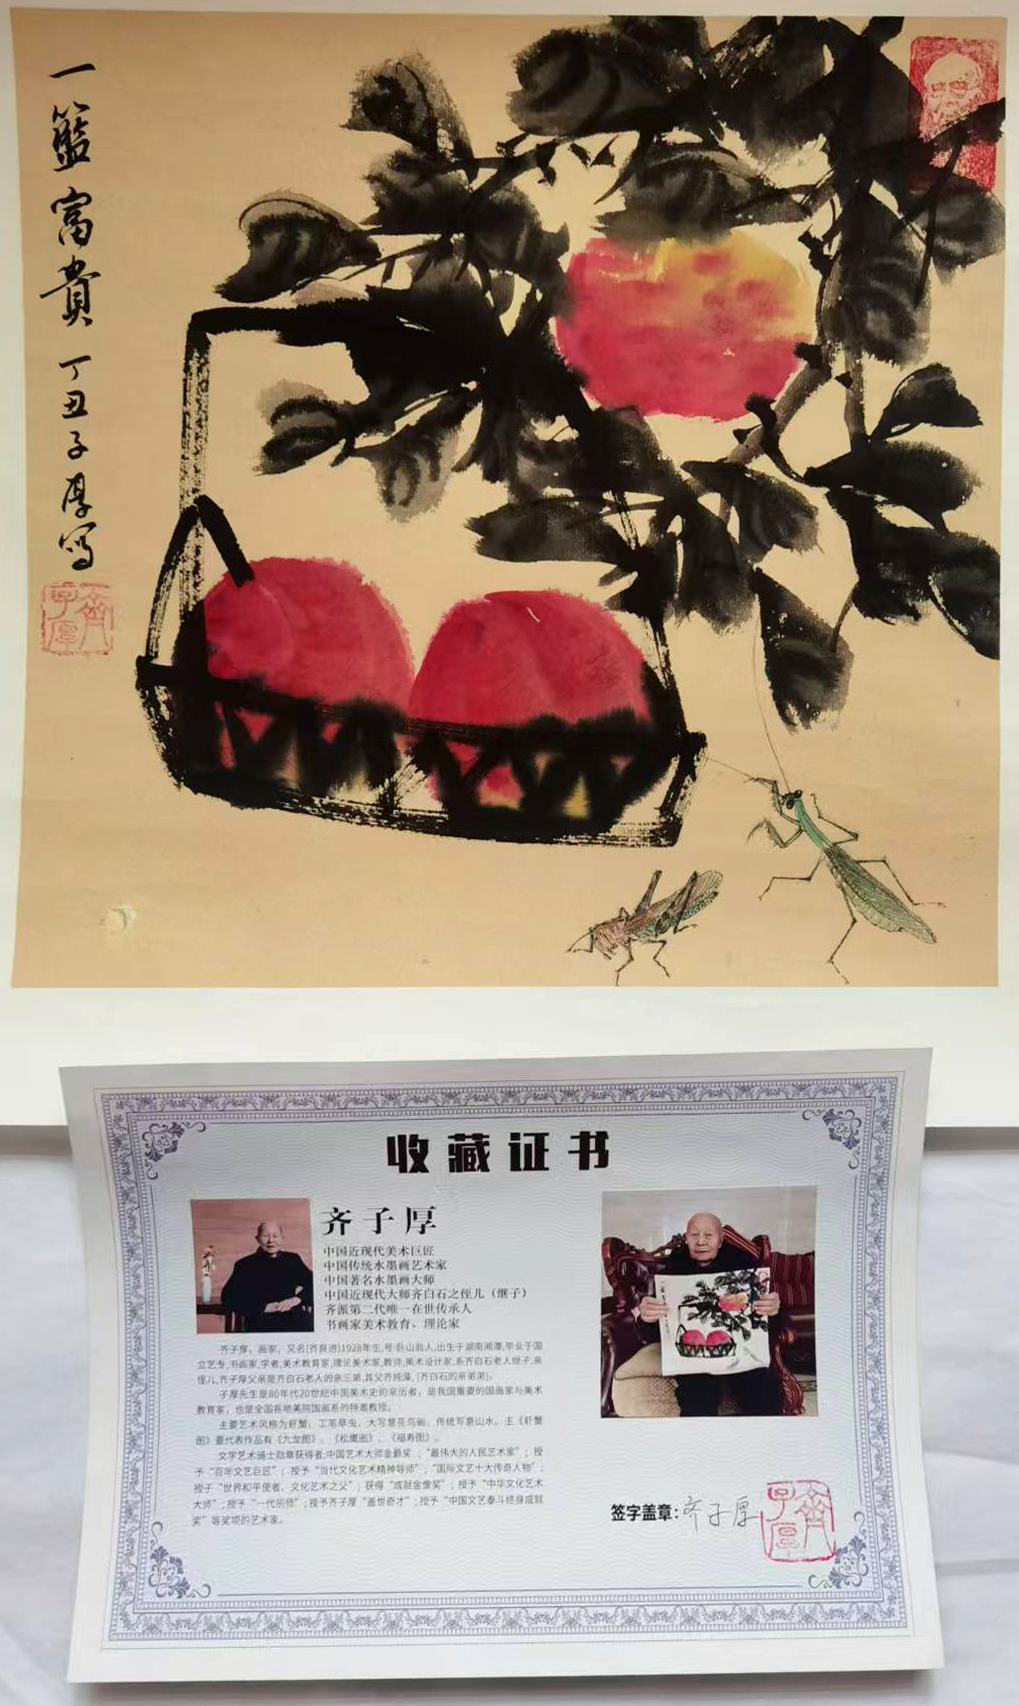 一籃富貴 丁丑子厚写
齊子厚
收藏证书
齐子厚
中国近现代美术巨匠
中国传统水墨画艺术家
中国著名水墨画大师
中国近现代大师齐白石之侄儿（继子）
齐派第二代唯一在世传承人
书画家美术教育、理论家
齐子厚，画家，又名(齐良进)1928年生,号:卧山翁人,出生于湖南湘潭,毕业于国
立艺专,书画家,学者,美术教育家,理论美术家,教师,美术设计家,系齐白石老人继子,亲
侄儿,齐子厚父亲是齐白石老人的亲三弟,其父齐纯藻，(齐白石的亲弟弟)。
子厚先生是80年代20世纪中国美术史的亲历者，是我国重要的国画家与美术
教育家，也是全国各地美院国画系的特邀教授。
主要艺术风格为虾蟹、工笔草虫、大写意花鸟画、传统写意山水。主《虾蟹
图》要代表作品有《九龙图》、《松鹰图》、《福寿图》。
文学艺术骑士勋章获得者;中国艺术大师金爵奖 ；“最伟大的人民艺术家”；授
予“百年文艺巨匠”；授予“当代文化艺术精神导师”；“国际文艺十大传奇人物”；
授子“世界和平使者、文化艺术之父”；获得“成就金像奖”；授予“中华文化艺术
大师”；授予“一代宗师”；授予齐子厚“盖世奇才”；授予“中国文艺泰斗终身成就
奖”等奖项的艺术家。
签字盖章：齐子厚
齊子厚